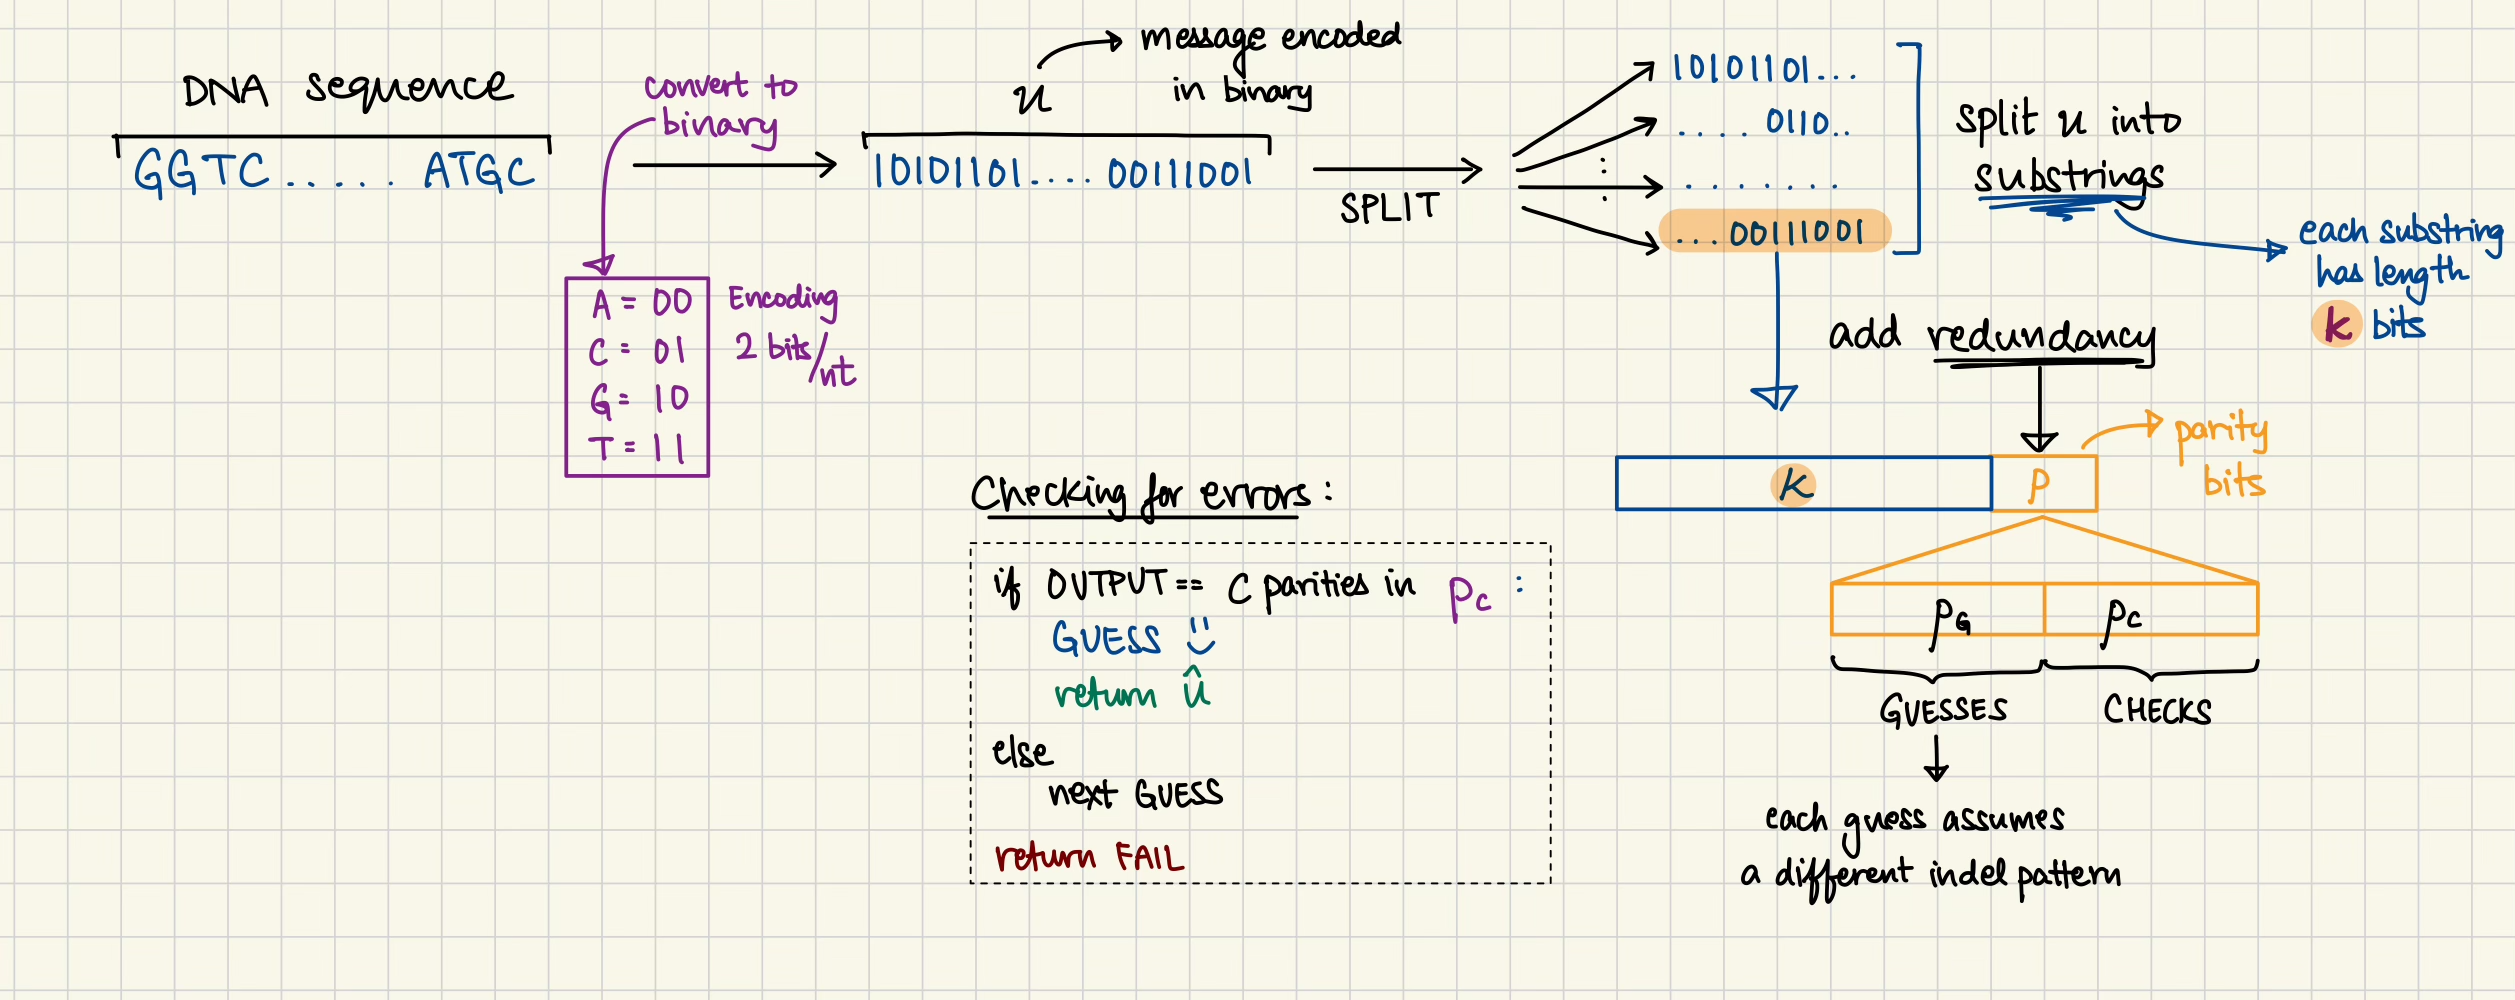 DNA sequence
GGTC ...... ATGC
covert to
binary
A = 00
C = 01
G = 10
T = 11
Encoding
2 bits/nt
u
message encoded
in binary
10101101.... 00111001
SPLIT
10101101...
.... 0110..
.......
...00111001
split u into
substrings
each substring
has length
k bits
add redundancy
k
P
parity
bits
PG
PC
GUESSES
CHECKS
each guess assumes
a different indel pattern
Checking for errors:
if OUTPUT == C parities in Pc :
GUESS
return û
else
next GUESS
return FAIL